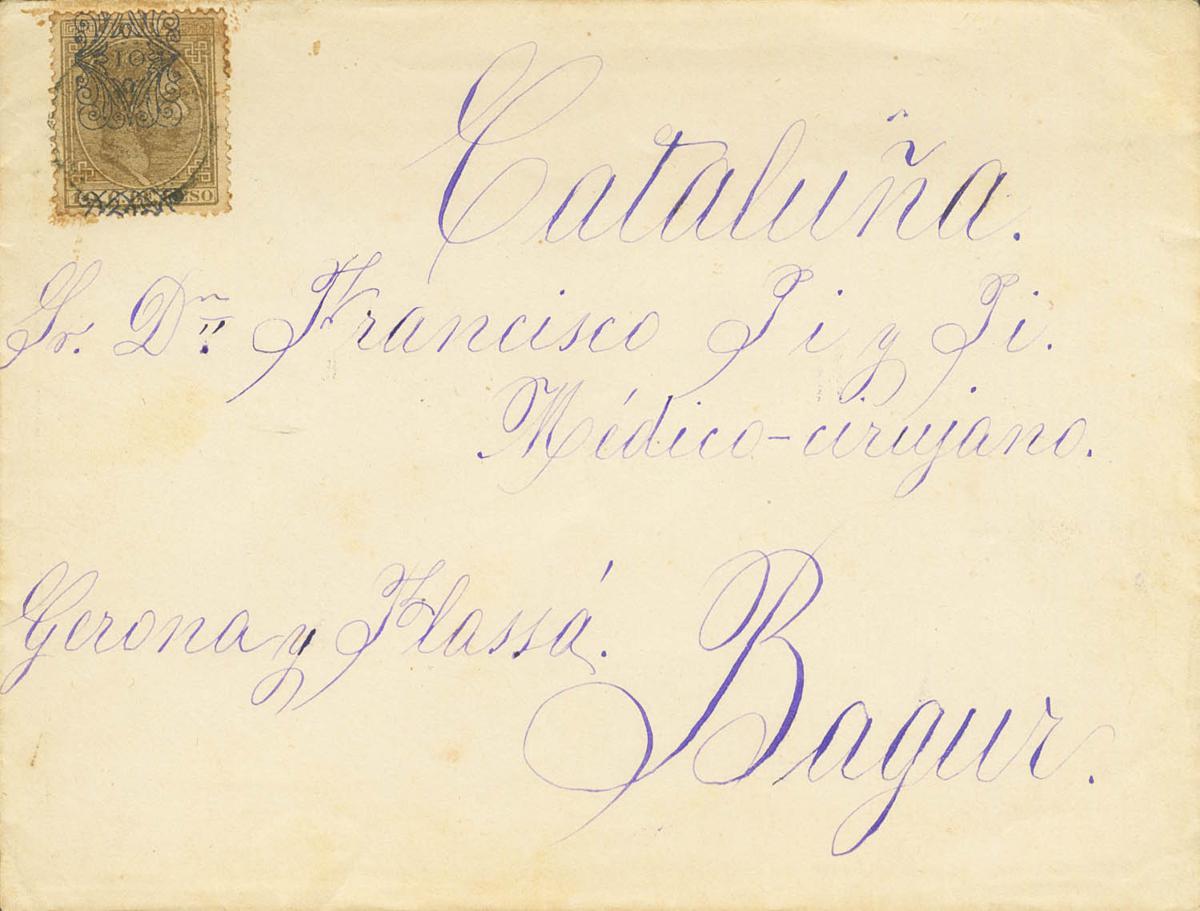 10
Cataluña.
Sr. Dn. Francisco Pi y Pi.
Médico-cirujano.
Gerona y Flassá.
Bagur.